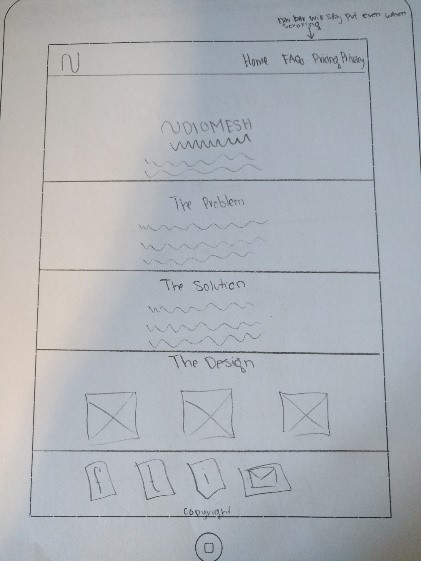 nav bar will stay put even when
scrolling
N
Home FAQs Pricing Privacy
NDIOMESH
The Problem
The Solution
The Design
f t i
copyright